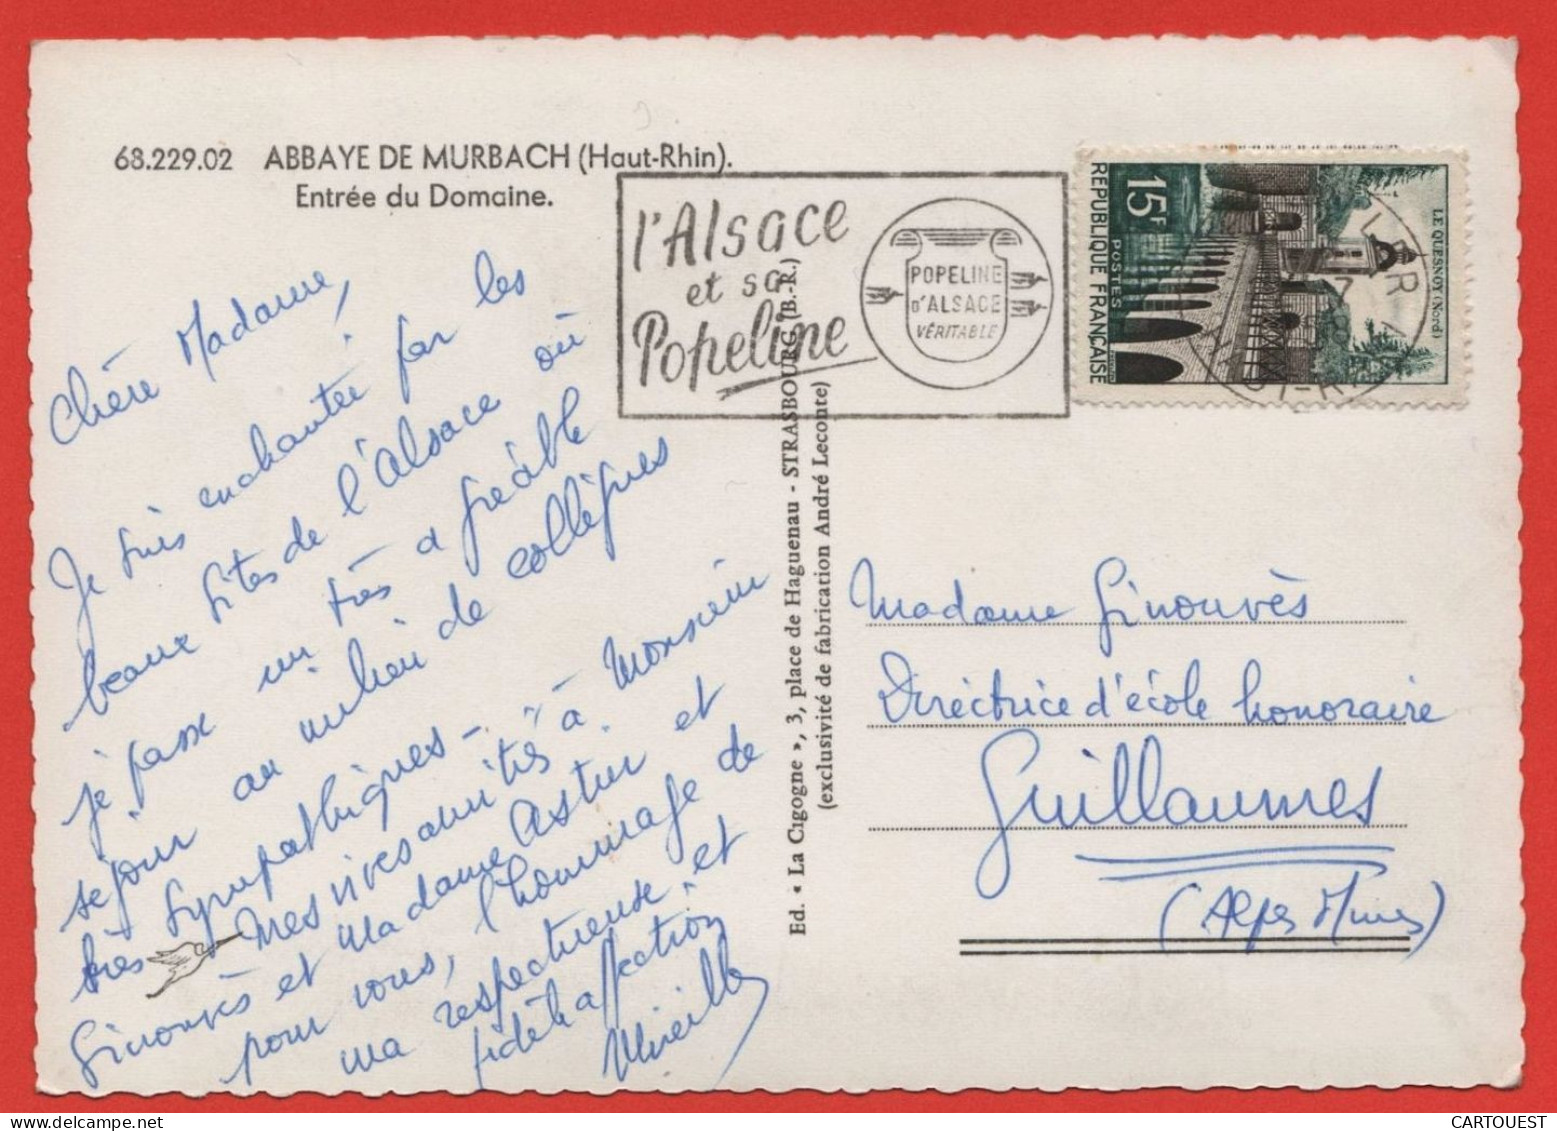 68.229.02 ABBAYE DE MURBACH (Haut-Rhin).
Entrée du Domaine.
l'Alsace
et sa
Popeline
POPELINE
d'ALSACE
VÉRITABLE
15F
POSTES
RÉPUBLIQUE FRANÇAISE
LE QUESNOY (Nord)
Chère Madame,
Je suis enchantée par les
beaux sites de l'Alsace où
je passe un très agréable
séjour au milieu de collègues
très sympathiques -
Mes vives amitiés à Monsieur
Ginouvès et Madame Astur et
pour vous, l'hommage de
ma respectueuse et
fidèle affection
Mireille
Ed. « La Cigogne », 3, place de Haguenau - STRASBOURG (B.-R.)
(exclusivité de fabrication André Leconte)
Madame Ginouvès
Directrice d'école honoraire
Guillaumes
(Alpes Mmes)
CARTOUEST